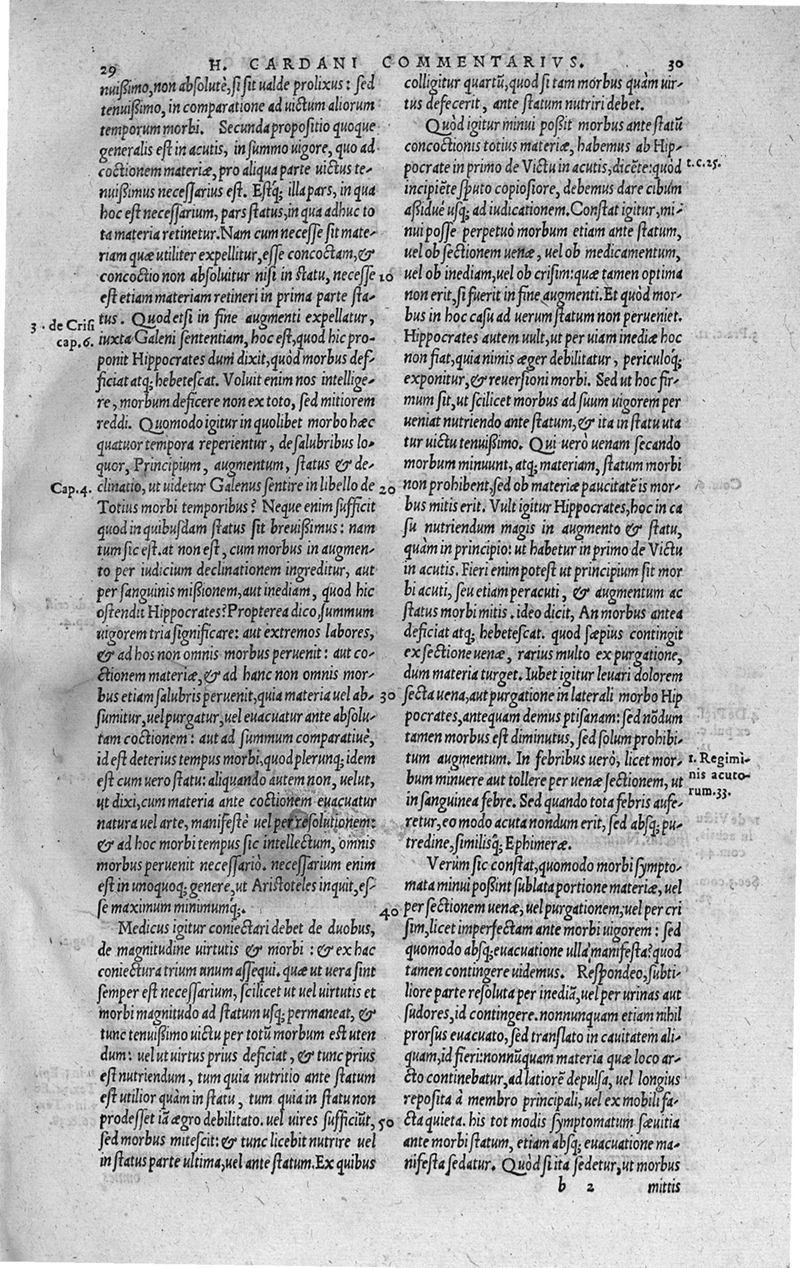 29 H. CARDANI COMMENTARIVS. 30
nuißimo, non absolutè, si sit ualde prolixus: sed
tenuißimo, in comparatione ad uictum aliorum
temporum morbi. Secunda propositio quoque
generalis est in acutis, in summo uigore, quo ad
coctionem materiæ, pro aliqua parte uictus te-
nuißimus necessarius est. Estq́; illa pars, in qua
hoc est necessarium, pars status, in qua adhuc to
ta materia retinetur. Nam cum necesse sit mate-
riam quæ utiliter expellitur, esse concoctam, &
concoctio non absoluitur nisi in statu, necesse 10
est etiam materiam retineri in prima parte sta-
tus. Quod etsi in fine augmenti expellatur,
3. de Crisi
cap. 6.
iuxta Galeni sententiam, hoc est, quod hic pro-
ponit Hippocrates dum dixit, quòd morbus def-
ficiat atq; hebetescat. Voluit enim nos intellige-
re, morbum deficere non ex toto, sed mitiorem
reddi. Quomodo igitur in quolibet morbo hæc
quatuor tempora reperientur, de salubribus lo-
quor, Principium, augmentum, status & de-
Cap. 4.
clinatio, ut uidetur Galenus sentire in libello de 20
Totius morbi temporibus? Neque enim sufficit
quod in quibusdam status sit breuißimus: nam
tum sic est. at non est, cum morbus in augmen-
to per iudicium declinationem ingreditur, aut
per sanguinis mißionem, aut inediam, quod hic
ostendit Hippocrates? Propterea dico, summum
uigorem tria significare: aut extremos labores,
& ad hos non omnis morbus peruenit: aut co-
ctionem materiæ, & ad hanc non omnis mor-
bus etiam salubris peruenit, quia materia uel ab- 30
sumitur, uel purgatur, uel euacuatur ante absolu-
tam coctionem: aut ad summum comparatiuè,
id est deterius tempus morbi, quod plerunq; idem
est cum uero statu: aliquando autem non, uelut,
ut dixi, cum materia ante coctionem euacuatur
natura uel arte, manifestè uel per resolutionem:
& ad hoc morbi tempus sic intellectum, omnis
morbus peruenit necessariò. necessarium enim
est in unoquoq; genere, ut Aristoteles inquit, es-
se maximum minimumq́;. 40
Medicus igitur coniectari debet de duobus,
de magnitudine uirtutis & morbi: & ex hac
coniectura trium unum assequi. quæ ut uera sint
semper est necessarium, scilicet ut uel uirtutis et
morbi magnitudo ad statum usq; permaneat, &
tunc tenuißimo uictu per totũ morbum est uten
dum: uel ut uirtus prius deficiat, & tunc prius
est nutriendum, tum quia nutritio ante statum
est utilior quàm in statu, tum quia in statu non
prodesset iã ægro debilitato. uel uires sufficiũt, 50
sed morbus mitescit: & tunc licebit nutrire uel
in status parte ultima, uel ante statum. Ex quibus
colligitur quartũ, quod si tam morbus quàm uir-
tus defecerit, ante statum nutriri debet.
Quòd igitur minui poßit morbus ante statũ
concoctionis totius materiæ, habemus ab Hip-
pocrate in primo de Victu in acutis, dicẽte: quòd
t. c. 25.
incipiẽte sputo copiosiore, debemus dare cibum
aßiduè usq; ad iudicationem. Constat igitur, mi-
nui posse perpetuò morbum etiam ante statum,
uel ob sectionem uenæ, uel ob medicamentum,
uel ob inediam, uel ob crisim: quæ tamen optima
non erit, si fuerit in fine augmenti. Et quòd mor-
bus in hoc casu ad uerum statum non perueniet.
Hippocrates autem uult, ut per uiam inediæ hoc
non fiat, quia nimis æger debilitatur, periculoq́;
exponitur, & reuersioni morbi. Sed ut hoc fir-
mum sit, ut scilicet morbus ad suum uigorem per
ueniat nutriendo ante statum, & ita in statu uta
tur uictu tenuißimo. Qui uerò uenam secando
morbum minuunt, atq; materiam, statum morbi
non prohibent, sed ob materiæ paucitatẽ is mor-
bus mitis erit. Vult igitur Hippocrates, hoc in ca
su nutriendum magis in augmento & statu,
quàm in principio: ut habetur in primo de Victu
in acutis. Fieri enim potest ut principium sit mor
bi acuti, seu etiam peracuti, & augmentum ac
status morbi mitis. ideo dicit, An morbus antea
deficiat atq; hebetescat. quod sæpius contingit
ex sectione uenæ, rarius multo ex purgatione,
dum materia turget. Iubet igitur leuari dolorem
secta uena, aut purgatione in laterali morbo Hip
pocrates, antequam demus ptisanam: sed nõdum
tamen morbus est diminutus, sed solum prohibi-
tum augmentum. In febribus uerò, licet mor-
1. Regimi-
nis acuto-
rum. 33.
bum minuere aut tollere per uenæ sectionem, ut
in sanguinea febre. Sed quando tota febris aufe-
retur, eo modo acuta nondum erit, sed absq; pu-
tredine, similisq́; Ephimeræ.
Verùm sic constat, quomodo morbi sympto-
mata minui poßint sublata portione materiæ, uel
per sectionem uenæ, uel purgationem, uel per cri
sim, licet imperfectam ante morbi uigorem: sed
quomodo absq; euacuatione ulla manifesta? quod
tamen contingere uidemus. Respondeo, subti-
liore parte resoluta per inediã, uel per urinas aut
sudores, id contingere. nonnunquam etiam nihil
prorsus euacuato, sed translato in cauitatem ali-
quam, id fieri: nonnũquam materia quæ loco ar-
cto continebatur, ad latiorẽ depulsa, uel longius
reposita à membro principali, uel ex mobili fa-
cta quieta. his tot modis symptomatum sæuitia
ante morbi statum, etiam absq; euacuatione ma-
nifesta sedatur. Quòd si ita sedetur, ut morbus
b 2 mittis